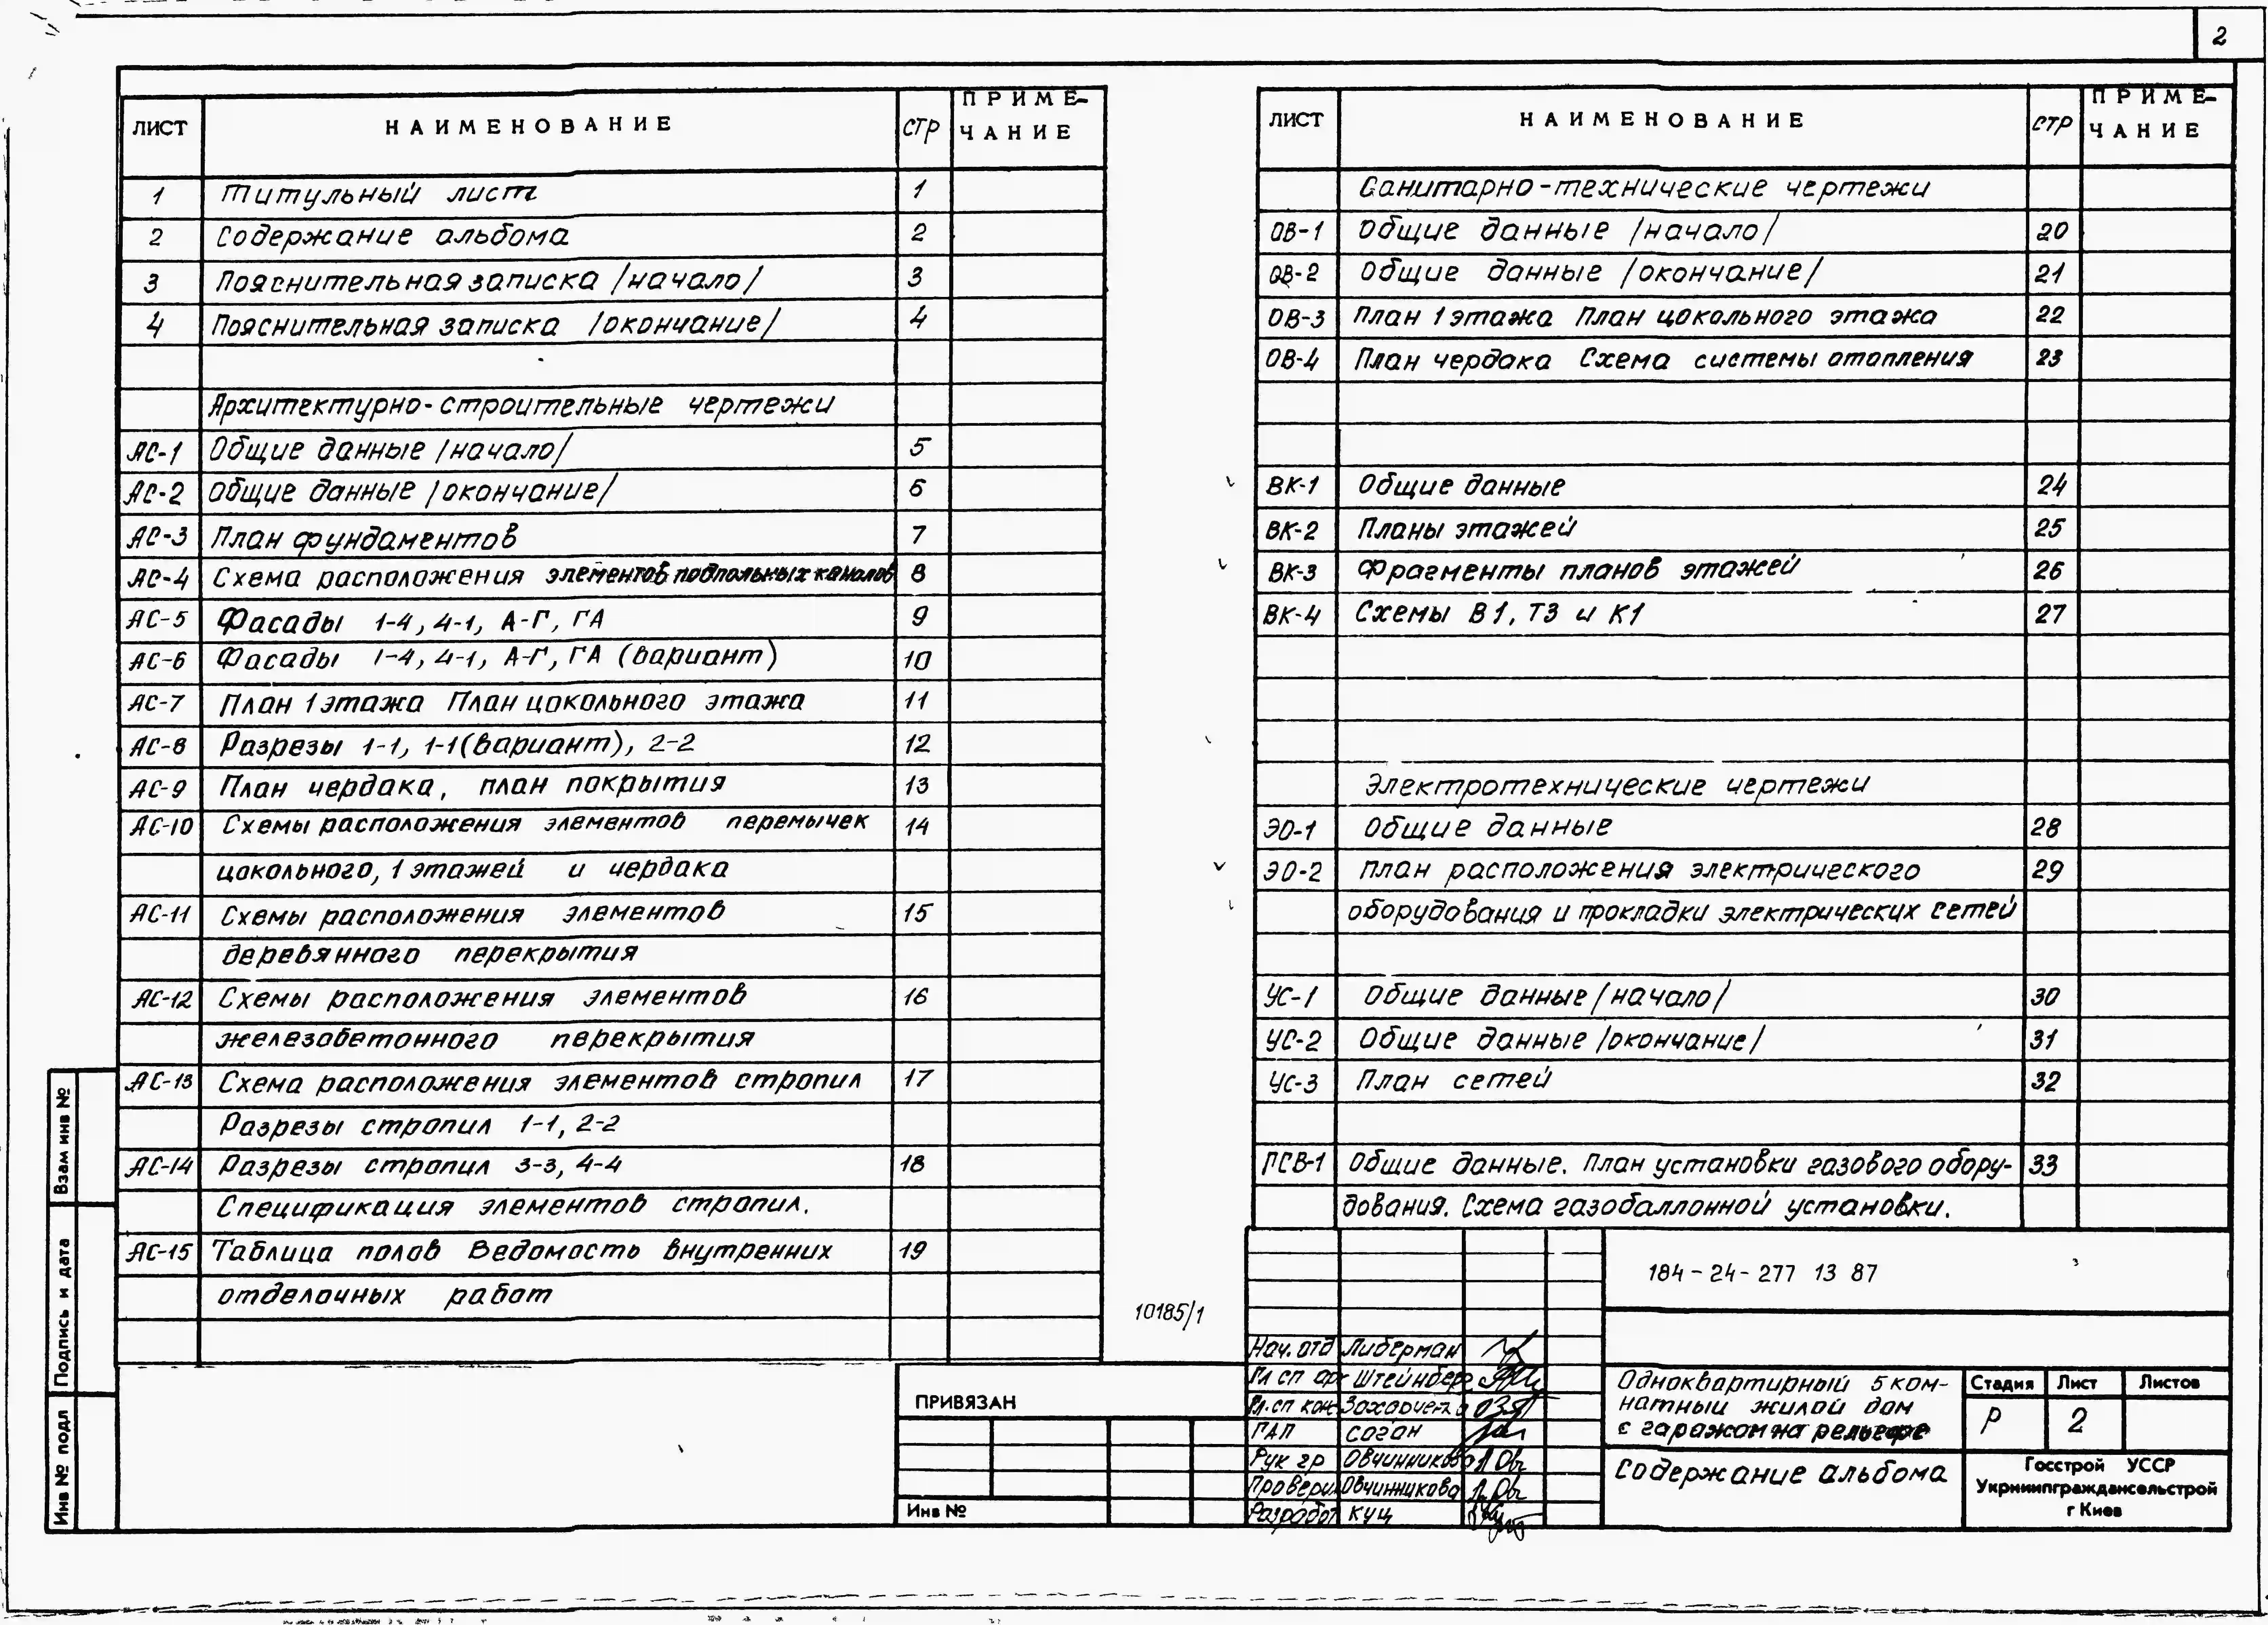 2
ЛИСТ НАИМЕНОВАНИЕ СТР ПРИМЕ-
ЧАНИЕ
1 Титульный лист 1
2 Содержание альбома 2
3 Пояснительная записка /начало/ 3
4 Пояснительная записка /окончание/ 4
Архитектурно-строительные чертежи
АС-1 Общие данные /начало/ 5
АС-2 Общие данные /окончание/ 6
АС-3 План фундаментов 7
АС-4 Схема расположения элементов подпольных каналов 8
АС-5 Фасады 1-4, 4-1, А-Г, ГА 9
АС-6 Фасады 1-4, 4-1, А-Г, ГА (вариант) 10
АС-7 План 1 этажа План цокольного этажа 11
АС-8 Разрезы 1-1, 1-1(вариант), 2-2 12
АС-9 План чердака, план покрытия 13
АС-10 Схемы расположения элементов перемычек 14
цокольного, 1 этажей и чердака
АС-11 Схемы расположения элементов 15
деревянного перекрытия
АС-12 Схемы расположения элементов 16
железобетонного перекрытия
АС-13 Схема расположения элементов стропил 17
Разрезы стропил 1-1, 2-2
АС-14 Разрезы стропил 3-3, 4-4 18
Спецификация элементов стропил.
АС-15 Таблица полов Ведомость внутренних 19
отделочных работ
ЛИСТ НАИМЕНОВАНИЕ СТР ПРИМЕ-
ЧАНИЕ
Санитарно-технические чертежи
ОВ-1 Общие данные /начало/ 20
ОВ-2 Общие данные /окончание/ 21
ОВ-3 План 1 этажа План цокольного этажа 22
ОВ-4 План чердака Схема системы отопления 23
ВК-1 Общие данные 24
ВК-2 Планы этажей 25
ВК-3 Фрагменты планов этажей 26
ВК-4 Схемы В1, Т3 и К1 27
Электротехнические чертежи
ЭО-1 Общие данные 28
ЭО-2 План расположения электрического 29
оборудования и прокладки электрических сетей
УС-1 Общие данные /начало/ 30
УС-2 Общие данные /окончание/ 31
УС-3 План сетей 32
ГСВ-1 Общие данные. План установки газового обору- 33
дования. Схема газобаллонной установки.
10185/1
184-24-277 13 87
Нач. отд Либерман
Гл сп Штейнберг
Гл. сп кон
ГАП Соган
Рук гр Овчинникова
Провери Овчинникова
Разработ Куц
Одноквартирный 5 ком-
натный жилой дом
с гаражом на рельефе
Стадия Лист Листов
Р 2
Содержание альбома
Госстрой УССР
Укрниипграждансельстрой
г Киев
ПРИВЯЗАН
Инв №
Взам инв №
Подпись и дата
Инв № подл